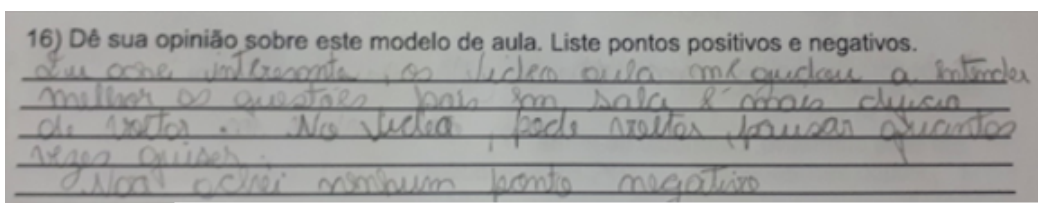 16) Dê sua opinião sobre este modelo de aula. Liste pontos positivos e negativos.
Eu interesante, os video aula me gudou a intender
melhor as questões, pois em sala é mais
de voltar. No video, pode voltar, pausar quantas
vezes quiser.
Não achei nenhum ponto negativo